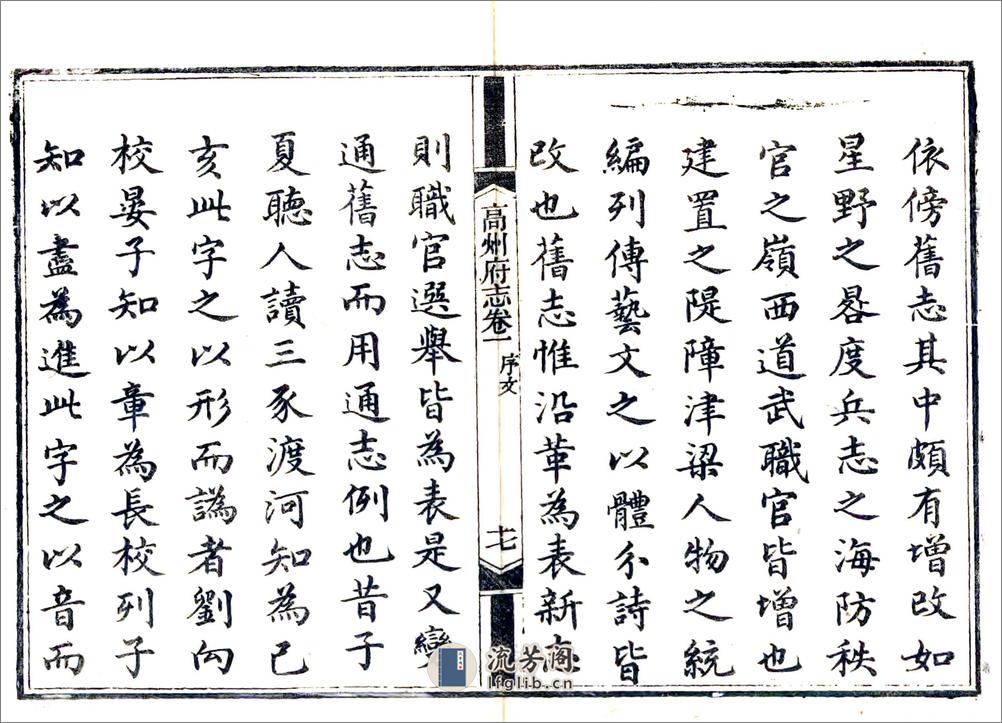 依傍舊志其中頗有增改如
星野之晷度兵志之海防秩
官之嶺西道武職官皆增也
建置之隄障津梁人物之統
編列傳藝文之以體分詩皆
改也舊志惟沿革為表新志
高州府志卷一 序文 十七
則職官選舉皆為表是又變
通舊志而用通志例也昔子
夏聽人讀三豕渡河知為己
亥此字之以形而譌者劉向
校晏子知以章為長校列子
知以盡為進此字之以音而
流芳阁
lfglib.cn